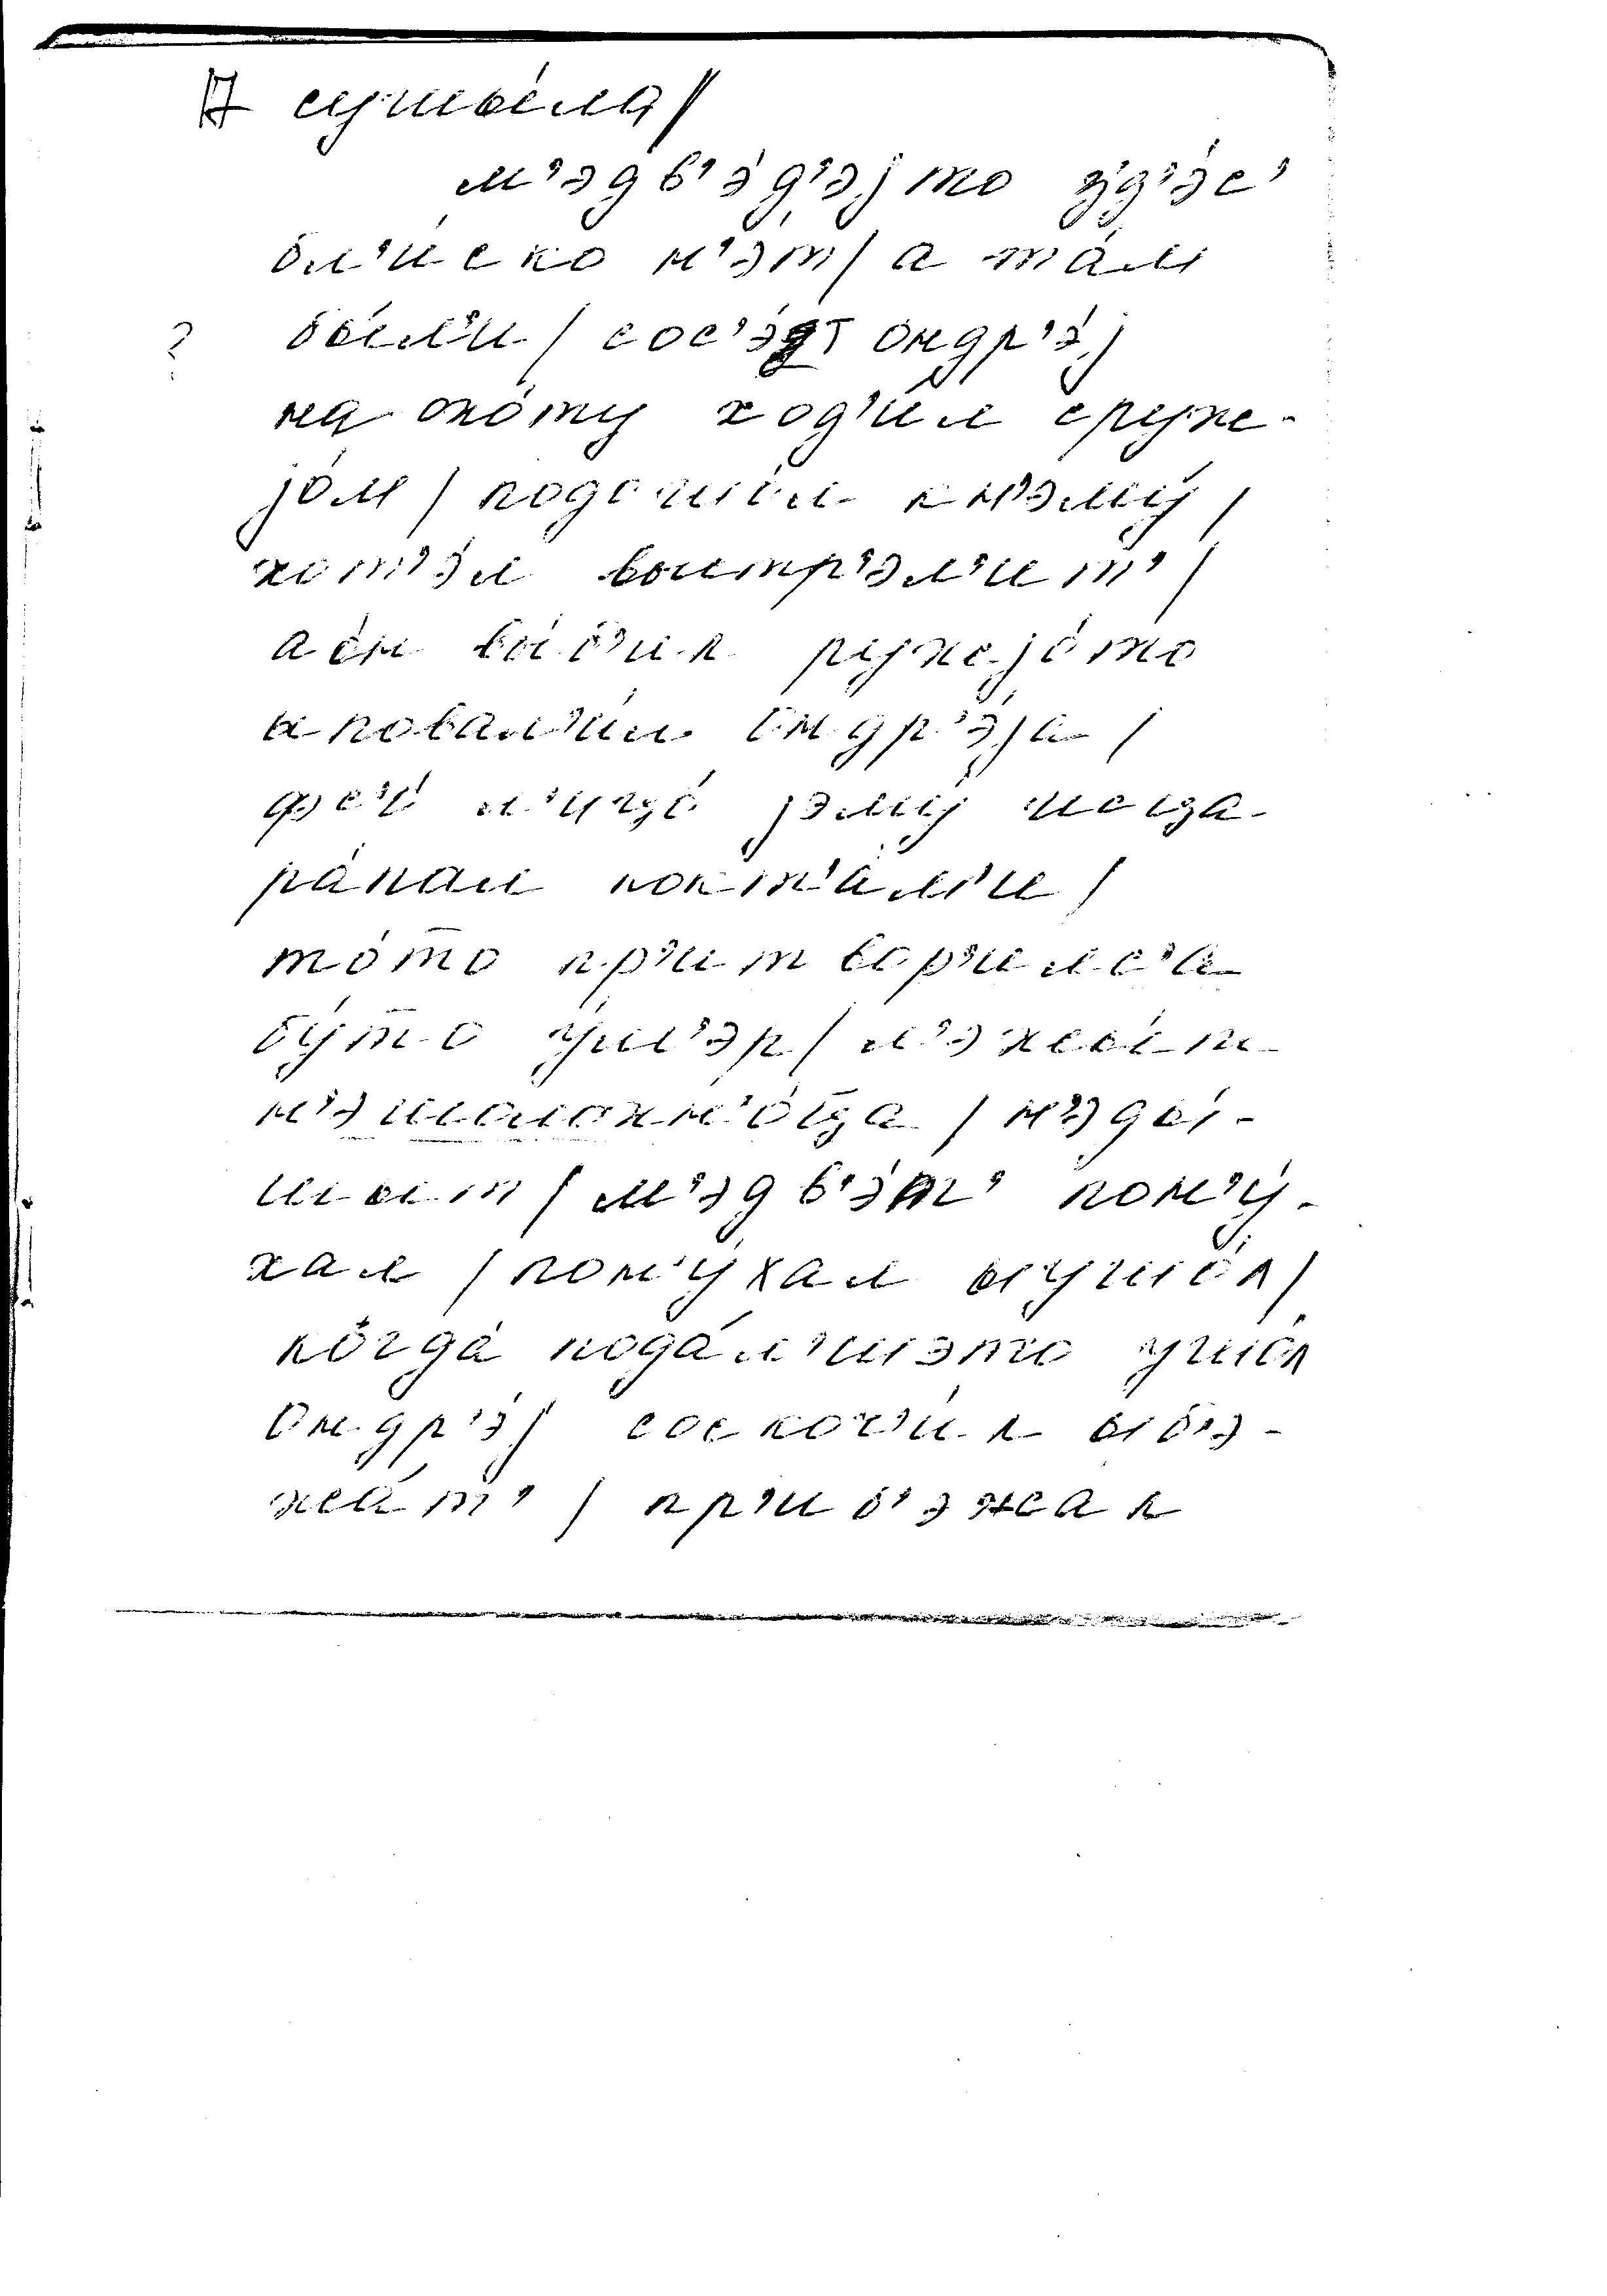 м'эдв'э́д'эј то з'д'э́с'
бл'и́ско н'э́т / а та́м
? бы́л'и / сос'э́дт ондр'э́ј
на охо́ту ход'и́л сруже-
јо́м / подошо́л кн'эму́ /
хот'э́л выстр'эл'ит' /
ао́н вы́б'ил ружејо́то
иповал'и́л Ондр'э́ја /
јэму́
ра́пал когт'а́м'и /
то́то пр'итвор'илс'а
бу́то у́м'эр / л'эжы́т
н'эшалохн'о́цца / н'эды́-
шыт / м'эдв'э́т' пон'у́-
хал / пон'у́хал ыушо́л /
когда́ пода́л'шэто ушо́л
Ондр'э́ј соскоч'и́л ыб'э-
жа́т' / пр'иб'эжал